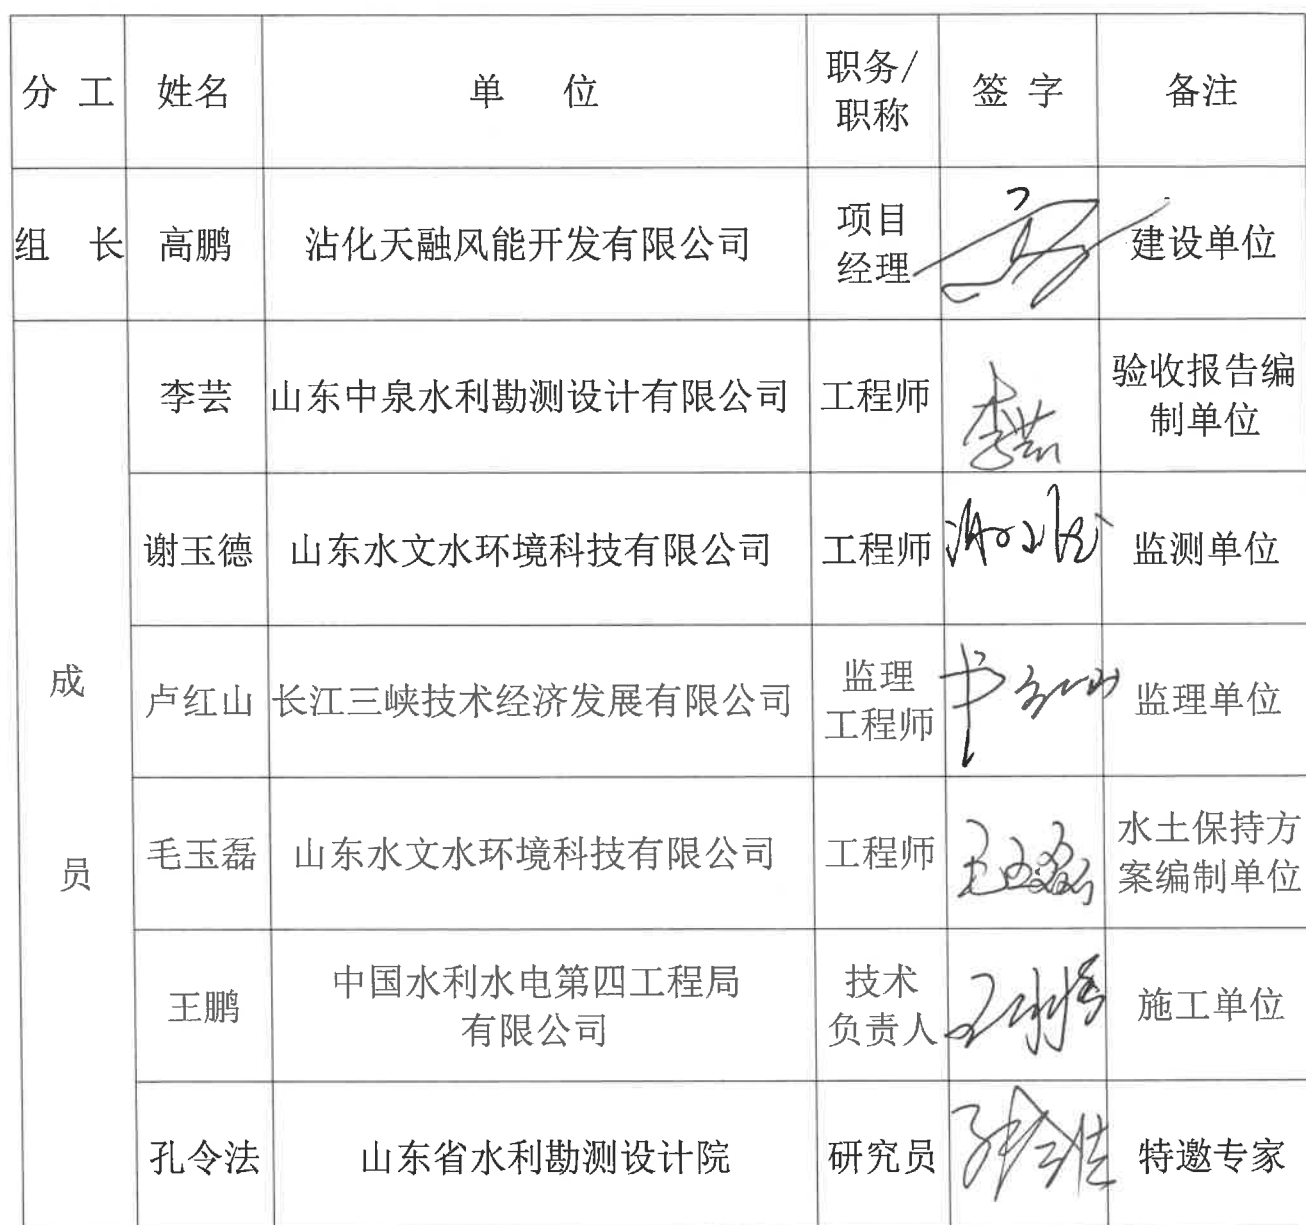 分 工 姓名 单 位 职务/职称 签 字 备注
组 长 高鹏 沾化天融风能开发有限公司 项目经理 建设单位
成员
李芸 山东中泉水利勘测设计有限公司 工程师 李芸 验收报告编制单位
谢玉德 山东水文水环境科技有限公司 工程师 监测单位
卢红山 长江三峡技术经济发展有限公司 监理工程师 监理单位
毛玉磊 山东水文水环境科技有限公司 工程师 毛玉磊 水土保持方案编制单位
王鹏 中国水利水电第四工程局有限公司 技术负责人 施工单位
孔令法 山东省水利勘测设计院 研究员 特邀专家